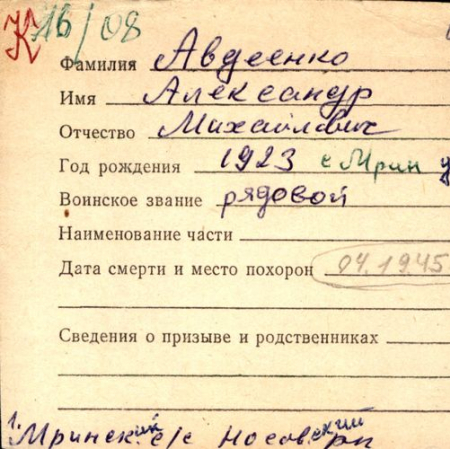 К 16/08
Фамилия Авдеенко
Имя Александр
Отчество Михайлович
Год рождения 1923 с Мрин
Воинское звание рядовой
Наименование части
Дата смерти и место похорон 04.1945
Сведения о призыве и родственниках
1. Мринский с/с Носовский рн